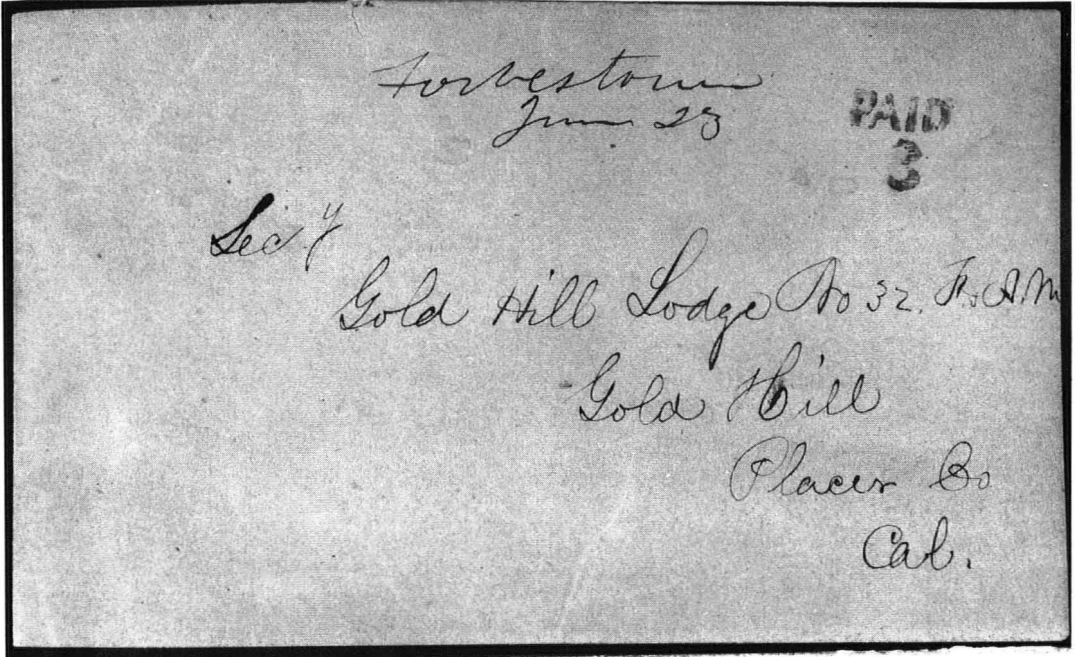 Forbestown
June 23
PAID
3
Secy
Gold Hill Lodge No 32. F. & A. M
Gold Hill
Placer Co
Cal.